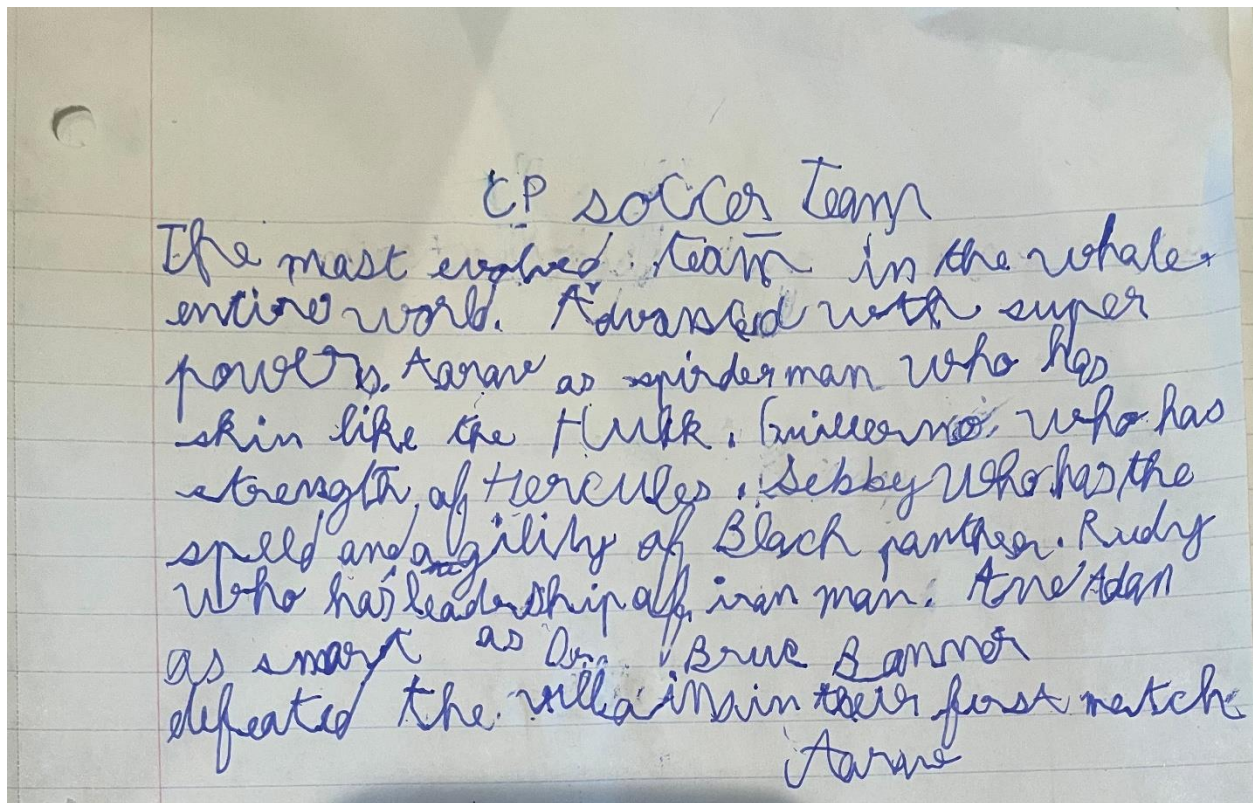 CP soccer Team
The most evolved team in the whole
entire world. Advansed with super
powers. Aarav as spiderman who has
skin like the Hulk. Guillermo who has
strength of Hercules. Sebby who has the
speed and agility of Black panther. Rudy
who has leadership of iran man. And Adan
as smart as Dr. Bruce Banner
defeated the villains in their first match
Aarav